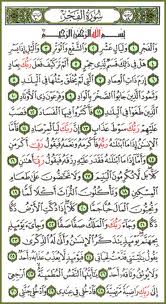 سُورَةُ الْفَجْرِ
بِسْمِ اللَّهِ الرَّحْمَٰنِ الرَّحِيمِ
وَالْفَجْرِ ١ وَلَيَالٍ عَشْرٍ ٢ وَالشَّفْعِ وَالْوَتْرِ ٣ وَاللَّيْلِ إِذَا يَسْرِ ٤
هَلْ فِي ذَٰلِكَ قَسَمٌ لِذِي حِجْرٍ ٥ أَلَمْ تَرَ كَيْفَ فَعَلَ رَبُّكَ بِعَادٍ ٦
إِرَمَ ذَاتِ الْعِمَادِ ٧ الَّتِي لَمْ يُخْلَقْ مِثْلُهَا فِي الْبِلَادِ ٨
وَثَمُودَ الَّذِينَ جَابُوا الصَّخْرَ بِالْوَادِ ٩ وَفِرْعَوْنَ ذِي الْأَوْتَادِ ١٠
الَّذِينَ طَغَوْا فِي الْبِلَادِ ١١ فَأَكْثَرُوا فِيهَا الْفَسَادَ ١٢ فَصَبَّ عَلَيْهِمْ
رَبُّكَ سَوْطَ عَذَابٍ ١٣ إِنَّ رَبَّكَ لَبِالْمِرْصَادِ ١٤ فَأَمَّا الْإِنْسَانُ إِذَا مَا
ابْتَلَاهُ رَبُّهُ فَأَكْرَمَهُ وَنَعَّمَهُ فَيَقُولُ رَبِّي أَكْرَمَنِ ١٥
وَأَمَّا إِذَا مَا ابْتَلَاهُ فَقَدَرَ عَلَيْهِ رِزْقَهُ فَيَقُولُ رَبِّي أَهَانَنِ ١٦
كَلَّا بَلْ لَا تُكْرِمُونَ الْيَتِيمَ ١٧ وَلَا تَحَاضُّونَ عَلَىٰ طَعَامِ
الْمِسْكِينِ ١٨ وَتَأْكُلُونَ التُّرَاثَ أَكْلًا لَمًّا ١٩
وَتُحِبُّونَ الْمَالَ حُبًّا جَمًّا ٢٠ كَلَّا إِذَا دُكَّتِ الْأَرْضُ دَكًّا
دَكًّا ٢١ وَجَاءَ رَبُّكَ وَالْمَلَكُ صَفًّا صَفًّا ٢٢ وَجِيءَ يَوْمَئِذٍ
بِجَهَنَّمَ يَوْمَئِذٍ يَتَذَكَّرُ الْإِنْسَانُ وَأَنَّىٰ لَهُ الذِّكْرَىٰ ٢٣
يَقُولُ يَا لَيْتَنِي قَدَّمْتُ لِحَيَاتِي ٢٤ فَيَوْمَئِذٍ لَا يُعَذِّبُ عَذَابَهُ أَحَدٌ ٢٥
وَلَا يُوثِقُ وَثَاقَهُ أَحَدٌ ٢٦ يَا أَيَّتُهَا النَّفْسُ الْمُطْمَئِنَّةُ ٢٧ ارْجِعِي
إِلَىٰ رَبِّكِ رَاضِيَةً مَرْضِيَّةً ٢٨ فَادْخُلِي فِي عِبَادِي ٢٩ وَادْخُلِي جَنَّتِي ٣٠